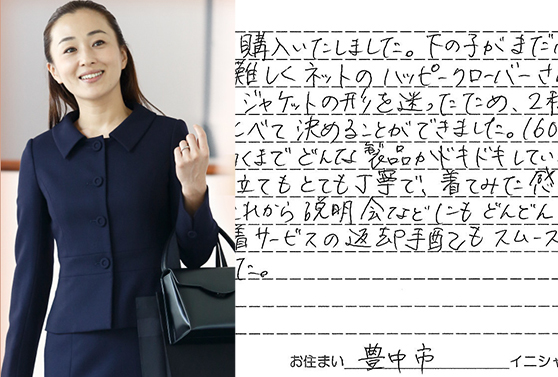 購入いたしました。下の子がまだ
難しくネットのハッピークローバーさ
ジャケットの形を迷ったため、2種
べて決めることができました。160
くまでどんな製品かドキドキしてい
立てもとても丁寧で、着てみた感
れから説明会などにもどんどん
着サービスの返却手配もスムーズ
た。
お住まい 豊中市 イニシャ